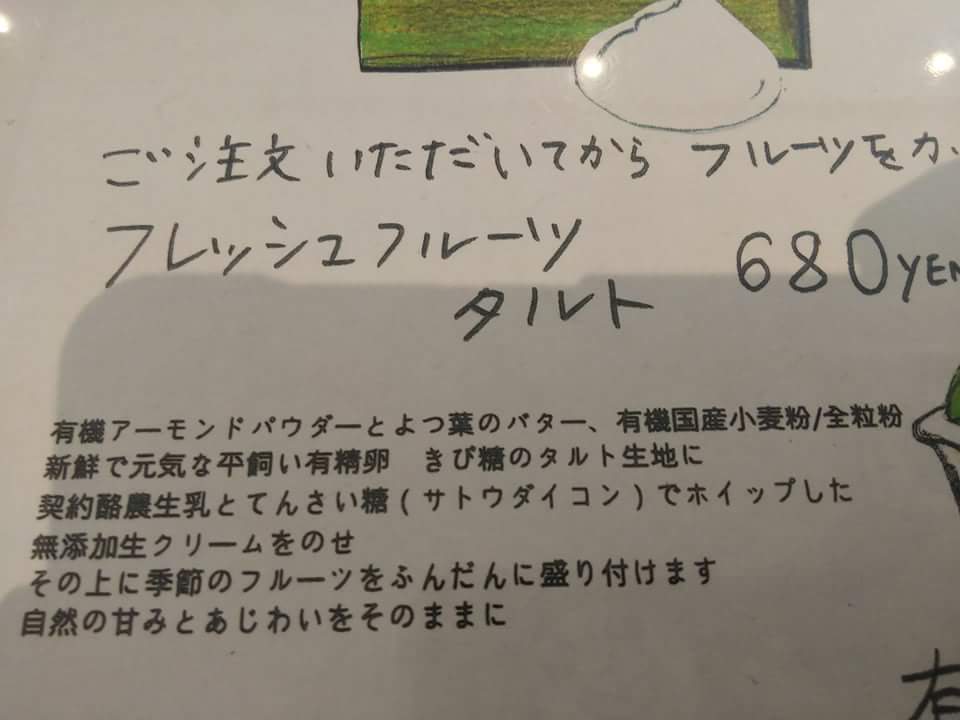 ご注文いただいてから フルーツをカ
フレッシュフルーツ
タルト 680YEN
有機アーモンドパウダーとよつ葉のバター、有機国産小麦粉/全粒粉
新鮮で元気な平飼い有精卵 きび糖のタルト生地に
契約酪農生乳とてんさい糖(サトウダイコン)でホイップした
無添加生クリームをのせ
その上に季節のフルーツをふんだんに盛り付けます
自然の甘みとあじわいをそのままに
有